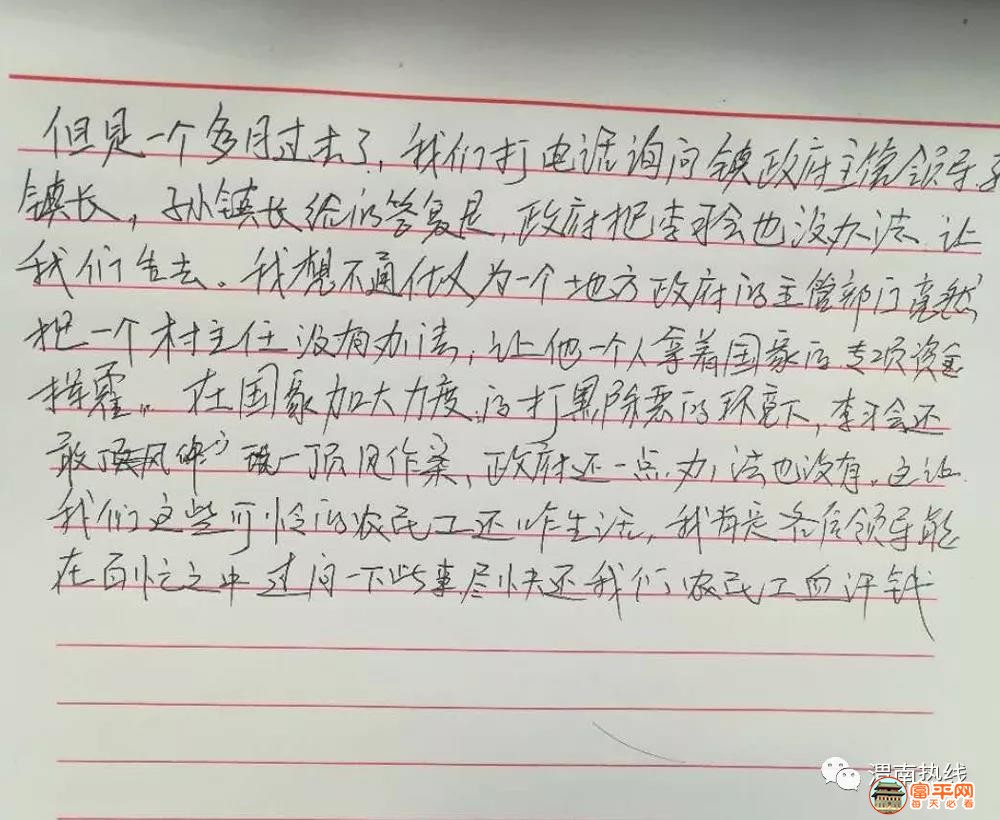 但是一个多月过去了,我们打电话询问镇政府主管领导孙
镇长,孙镇长给的答复是,政府把李 会也没办法.让
我们告去。我想不通做为一个地方政府的主管部门竟然
把一个村主任没有办法,让他一个人拿着国家的专项资金
挥霍。在国家加大力度的打黑除恶的环境下,李 会还
敢顶风 顶风作案、政府还一点办法也没有.这让
我们这些可怜的农民工还咋生活,我 各位领导能
在百忙之中过问一下些事尽快还我们农民工血汗钱
渭南热线
富平网
每天必看